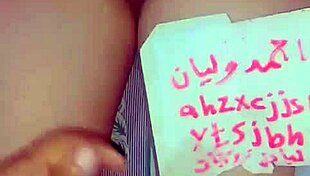 احمد وليان
ahzxcjjs
yt5jbh